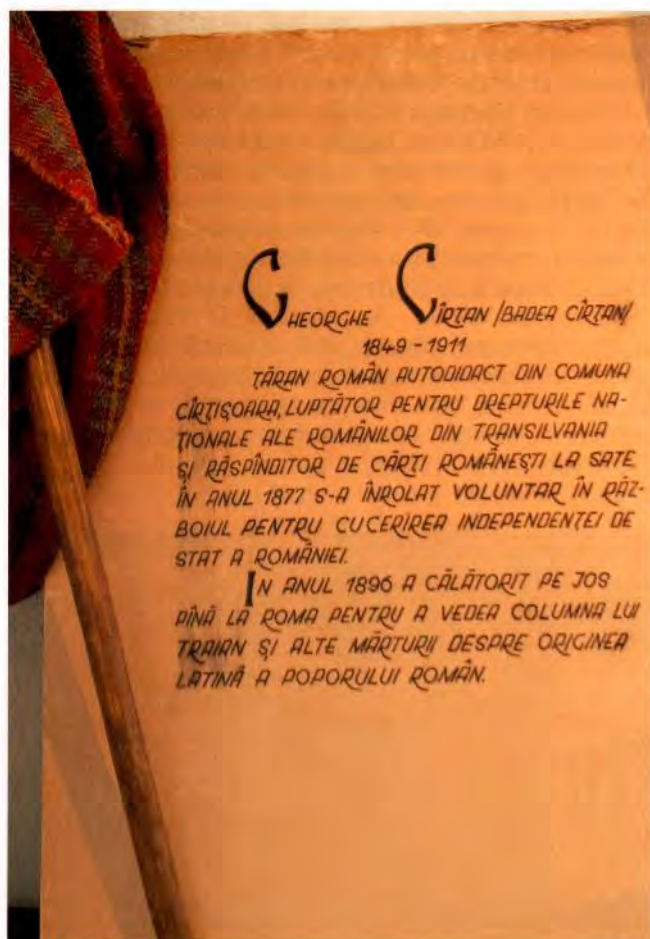 GHEORGHE CÎRȚAN /BADEA CÎRȚAN/
1849 - 1911
ȚĂRAN ROMÂN AUTODIDACT DIN COMUNA
CÎRȚIȘOARA, LUPTĂTOR PENTRU DREPTURILE NA-
ȚIONALE ALE ROMÂNILOR DIN TRANSILVANIA
ȘI RĂSPÎNDITOR DE CĂRȚI ROMÂNEȘTI LA SATE.
ÎN ANUL 1877 S-A ÎNROLAT VOLUNTAR ÎN RĂZ-
BOIUL PENTRU CUCERIREA INDEPENDENȚEI DE
STAT A ROMÂNIEI.
IN ANUL 1896 A CĂLĂTORIT PE JOS
PÎNĂ LA ROMA PENTRU A VEDEA COLUMNA LUI
TRAIAN ȘI ALTE MĂRTURII DESPRE ORIGINEA
LATINĂ A POPORULUI ROMÂN.